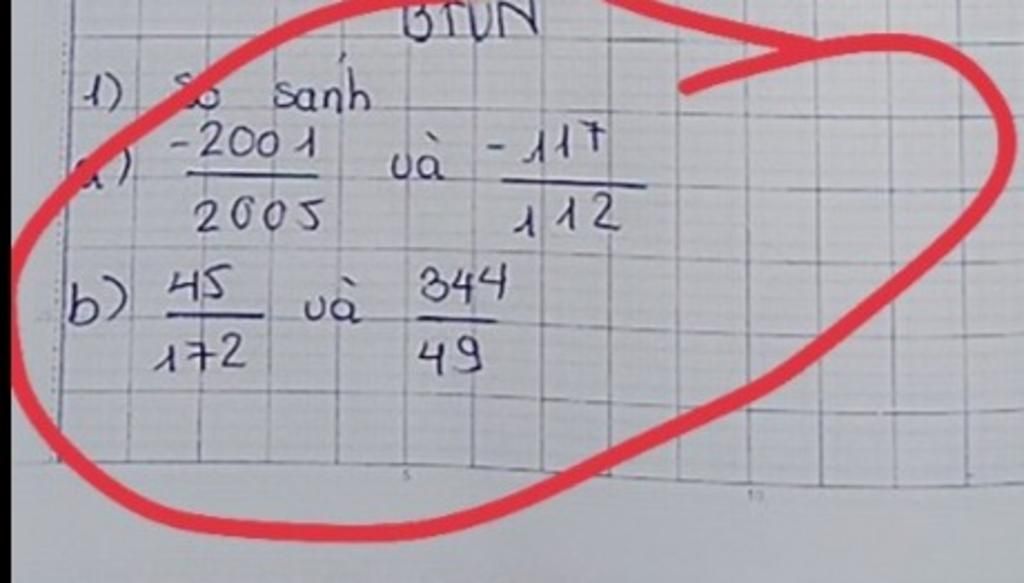 BTVN
1) So sánh
a) -2001/2005 và -117/112
b) 45/172 và 344/49
5
10